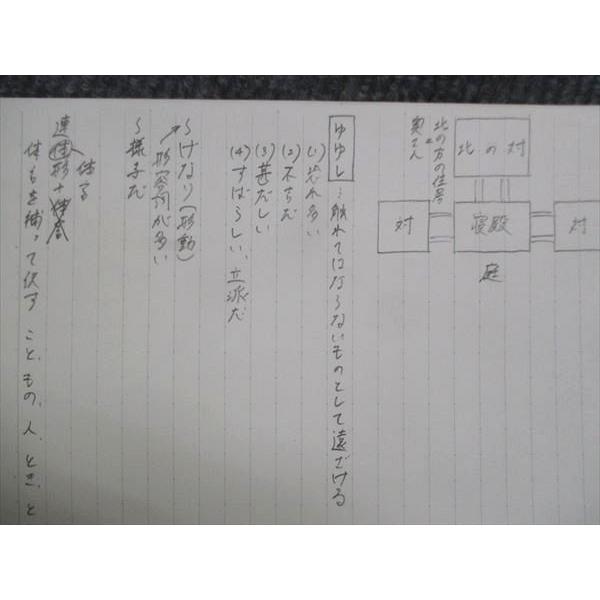 北の対
北の方の住居
=
奥さん
対
寝殿
対
庭
ゆゆし：触れてはならないものとして遠ざける
(1)恐れ多い
(2)不吉だ
(3)甚だしい
(4)すばらしい、立派だ
〜げなり(形動)
形容詞が多い
〜様子だ
体る
連体形+
体もを補って伏す こと、もの、人、とき、と